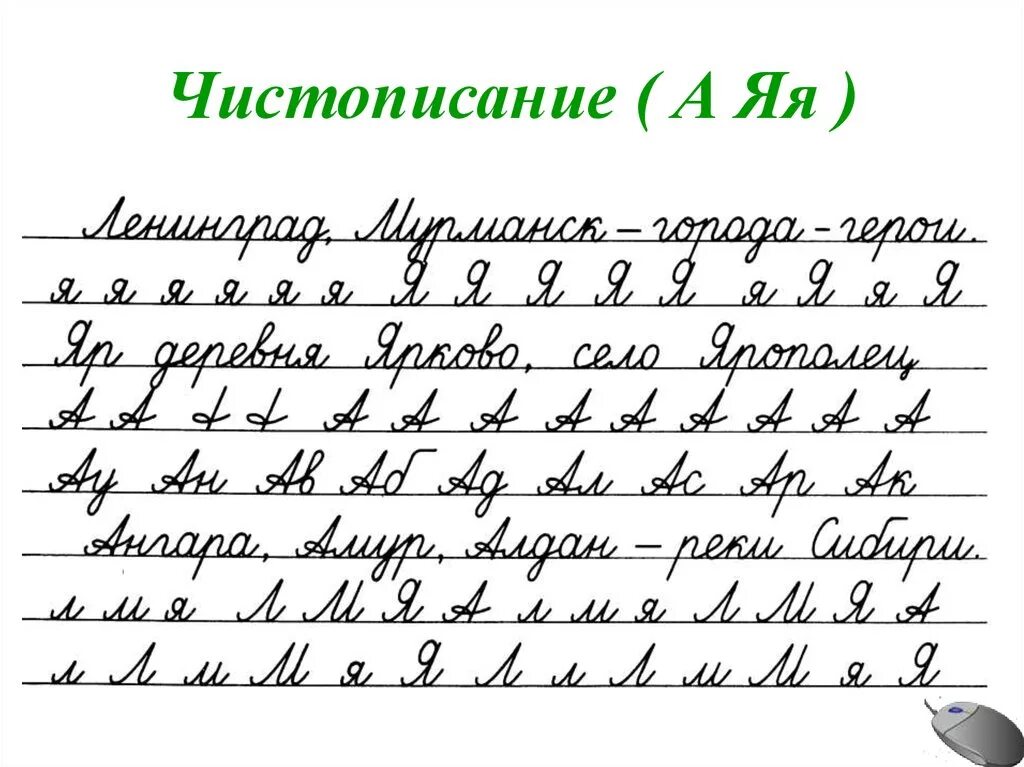 Чистописание ( А Яя )
Ленинград, Мурманск – города - герои.
я я я я я я Я Я Я Я Я я Я я Я
Яр деревня Ярково, село Ярополец
А А А А А А А А А А А
Ау Ан Ав Аб Ад Ал Ас Ар Ак
Ангара, Амур, Алдан – реки Сибири.
л м я Л М Я А л м я Л М Я А
л Л м М я Я Л л Л м М я Я